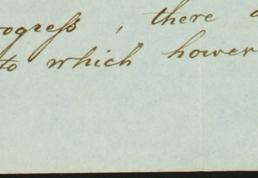 ogress, there
to which howev